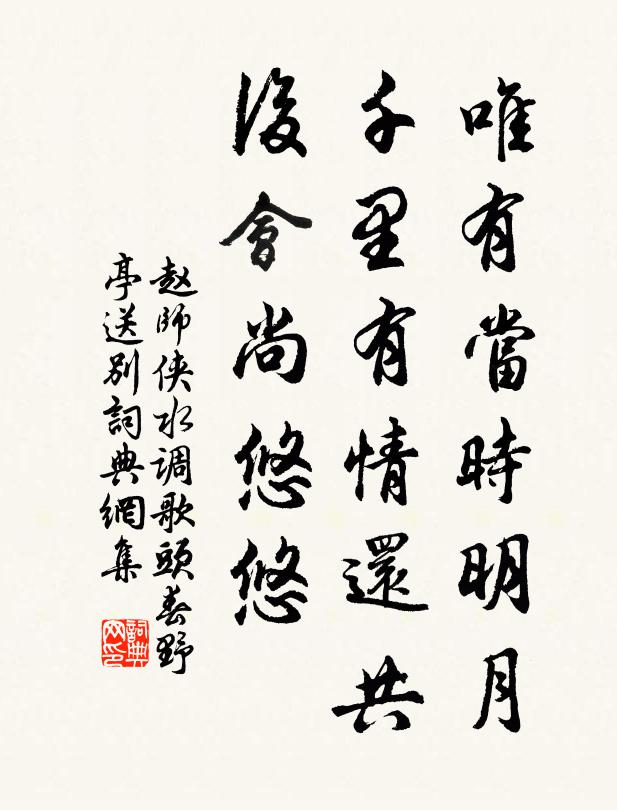 唯有當時明月
千里有情還共
後會尚悠悠
赵師侠水调歌頭春野
亭送别詞典網集
詞典
网印